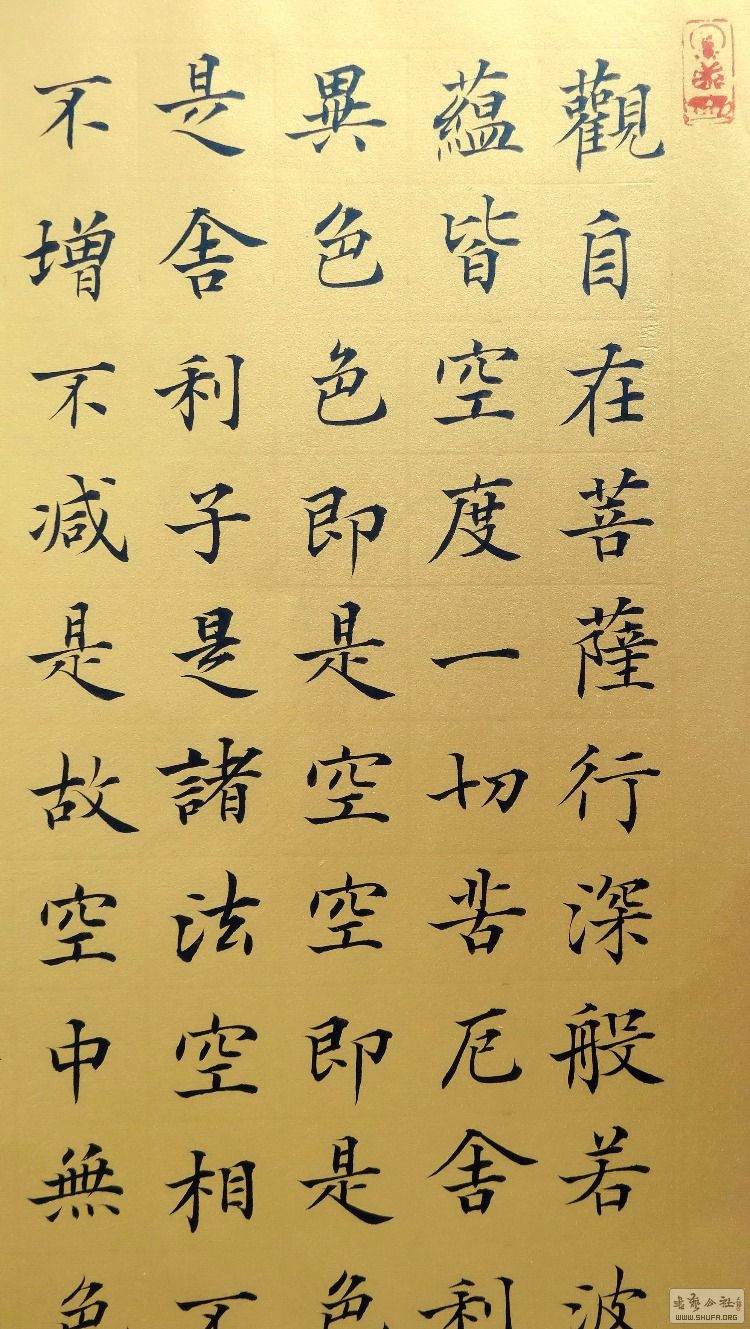 觀自在菩薩行深般若波
蘊皆空度一切苦厄舍利
異色色即是空空即是色
是舍利子是諸法空相不
不增不減是故空中無色
WWW.SHUFA.ORG